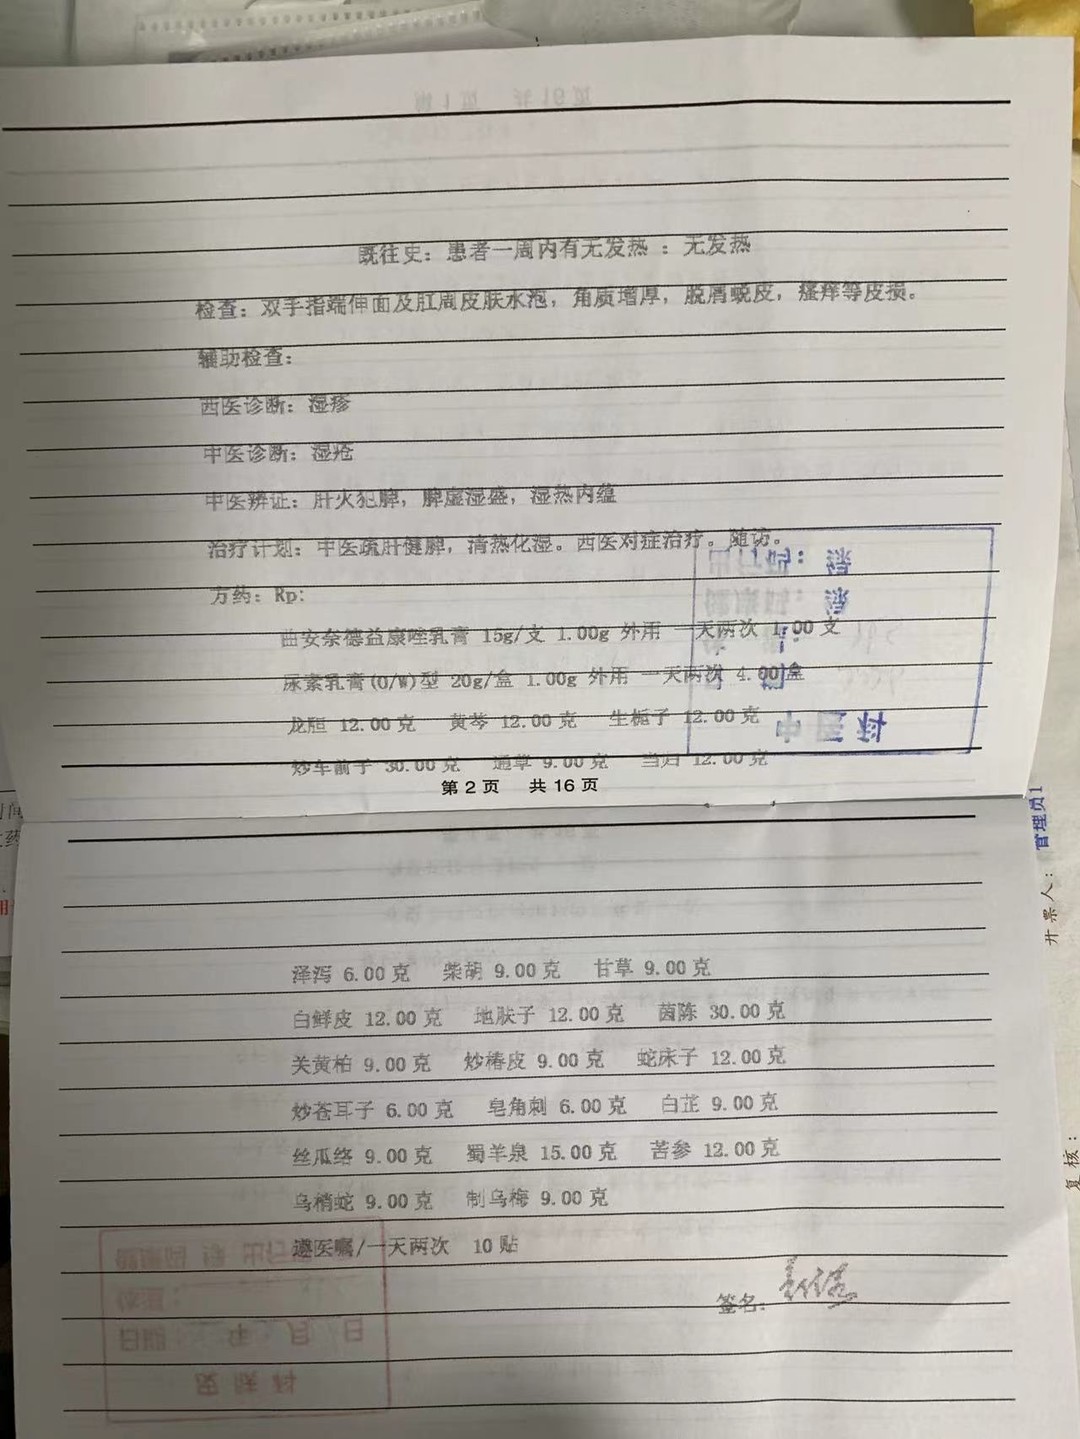 既往史：患者一周内有无发热 ：无发热
检查：双手指端伸面及肛周皮肤水泡，角质增厚，脱屑蜕皮，瘙痒等皮损。
辅助检查：
西医诊断：湿疹
中医诊断：湿疮
中医辨证：肝火犯脾，脾虚湿盛，湿热内蕴
治疗计划：中医疏肝健脾，清热化湿。西医对症治疗。随访。
方药：Rp:
曲安奈德益康唑乳膏 15g/支 1.00g 外用 一天两次 1.00 支
尿素乳膏(O/W)型 20g/盒 1.00g 外用 一天两次 4.00 盒
龙胆 12.00 克 黄芩 12.00 克 生栀子 12.00 克
炒车前子 30.00 克 通草 9.00 克 当归 12.00 克
第 2 页 共 16 页
泽泻 6.00 克 柴胡 9.00 克 甘草 9.00 克
白鲜皮 12.00 克 地肤子 12.00 克 茵陈 30.00 克
关黄柏 9.00 克 炒椿皮 9.00 克 蛇床子 12.00 克
炒苍耳子 6.00 克 皂角刺 6.00 克 白芷 9.00 克
丝瓜络 9.00 克 蜀羊泉 15.00 克 苦参 12.00 克
乌梢蛇 9.00 克 制乌梅 9.00 克
遵医嘱/一天两次 10 贴
签名：
中医科
日期： 年 月 日
皮肤科
开票人： 管理员1
复核：